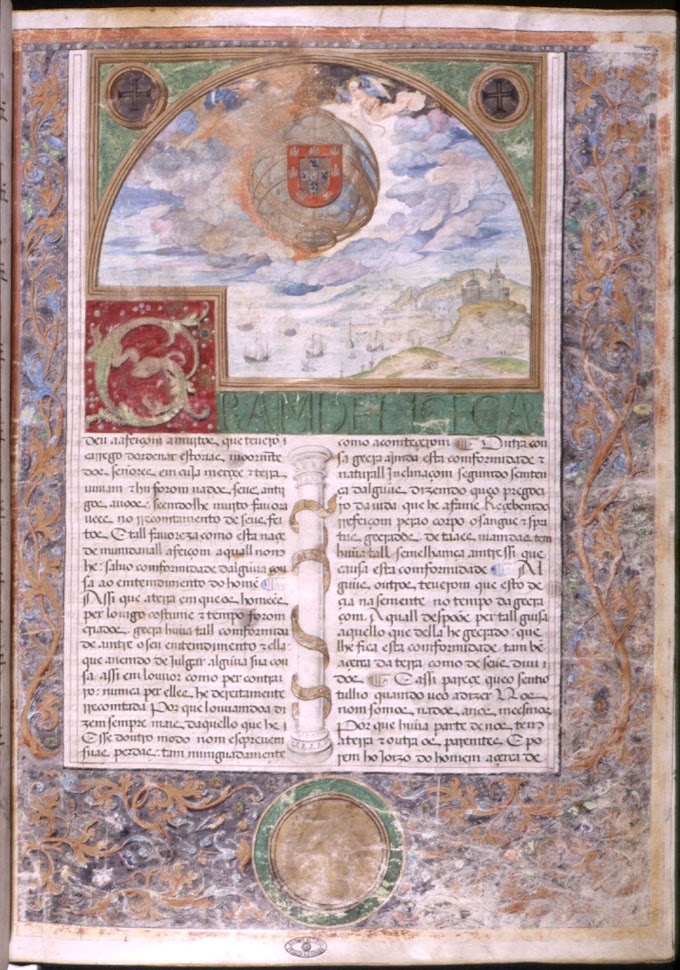 GRAMDE LICECA
deu a afeiçom a muitos, que teuerõ
carrego dordenar estorias, moormẽte
dos senores em cuia merçee & terra
uiuiam & hu forom nados, seus anti
gos auoos: seendolhe muito fauora
uees no recontamento de seus fei
tos E tall fauoreza como esta naçe
de mundanall afeiçom aquall nom
he: saluo comformidade dalgũa cou
sa ao entendimento do homẽ
Assi que a terra em que os homees
per longo costume & tempo forom
criados gera hũua tall comformida
de antre o seu entendimento & ella
que auendo de julgar algũua sua cou
sa assi em louuor como per contra
ro: nunca per elles he dereitamente
recontada Por que louuamdoa di
zem sempre mais daquello que he:
E sse doutro modo nom espreuem
suas perdas: tam minguadamente
como acomteçerom Outra cou
sa gera ajmda esta comformidade &
naturall Inclinaçom segundo semten
ça dalguũs dizendo que o pregoei
ro da uida que he a fame Reçebendo
refeiçom pera o corpo o sangue & spri
tus gerados de taaes uiandas tem
hũua tall semelhança antre ssi que
causa esta comformidade Al
guũs outros teuerom que esto de
çia na semente no tempo da gera
çom A quall despoõe per tall guisa
aquello que della he gerado: que
lhe fica esta comformidade tam bẽ
açerca da terra como de seus diui
dos E assi pareçe que o sentio
tulho quando ueo a dizer Nos
nom somos nados a nos meesmos
Por que hũua parte de nos tem
a terra & outra os parentes E po
rem ho Juizo do homem açerca de